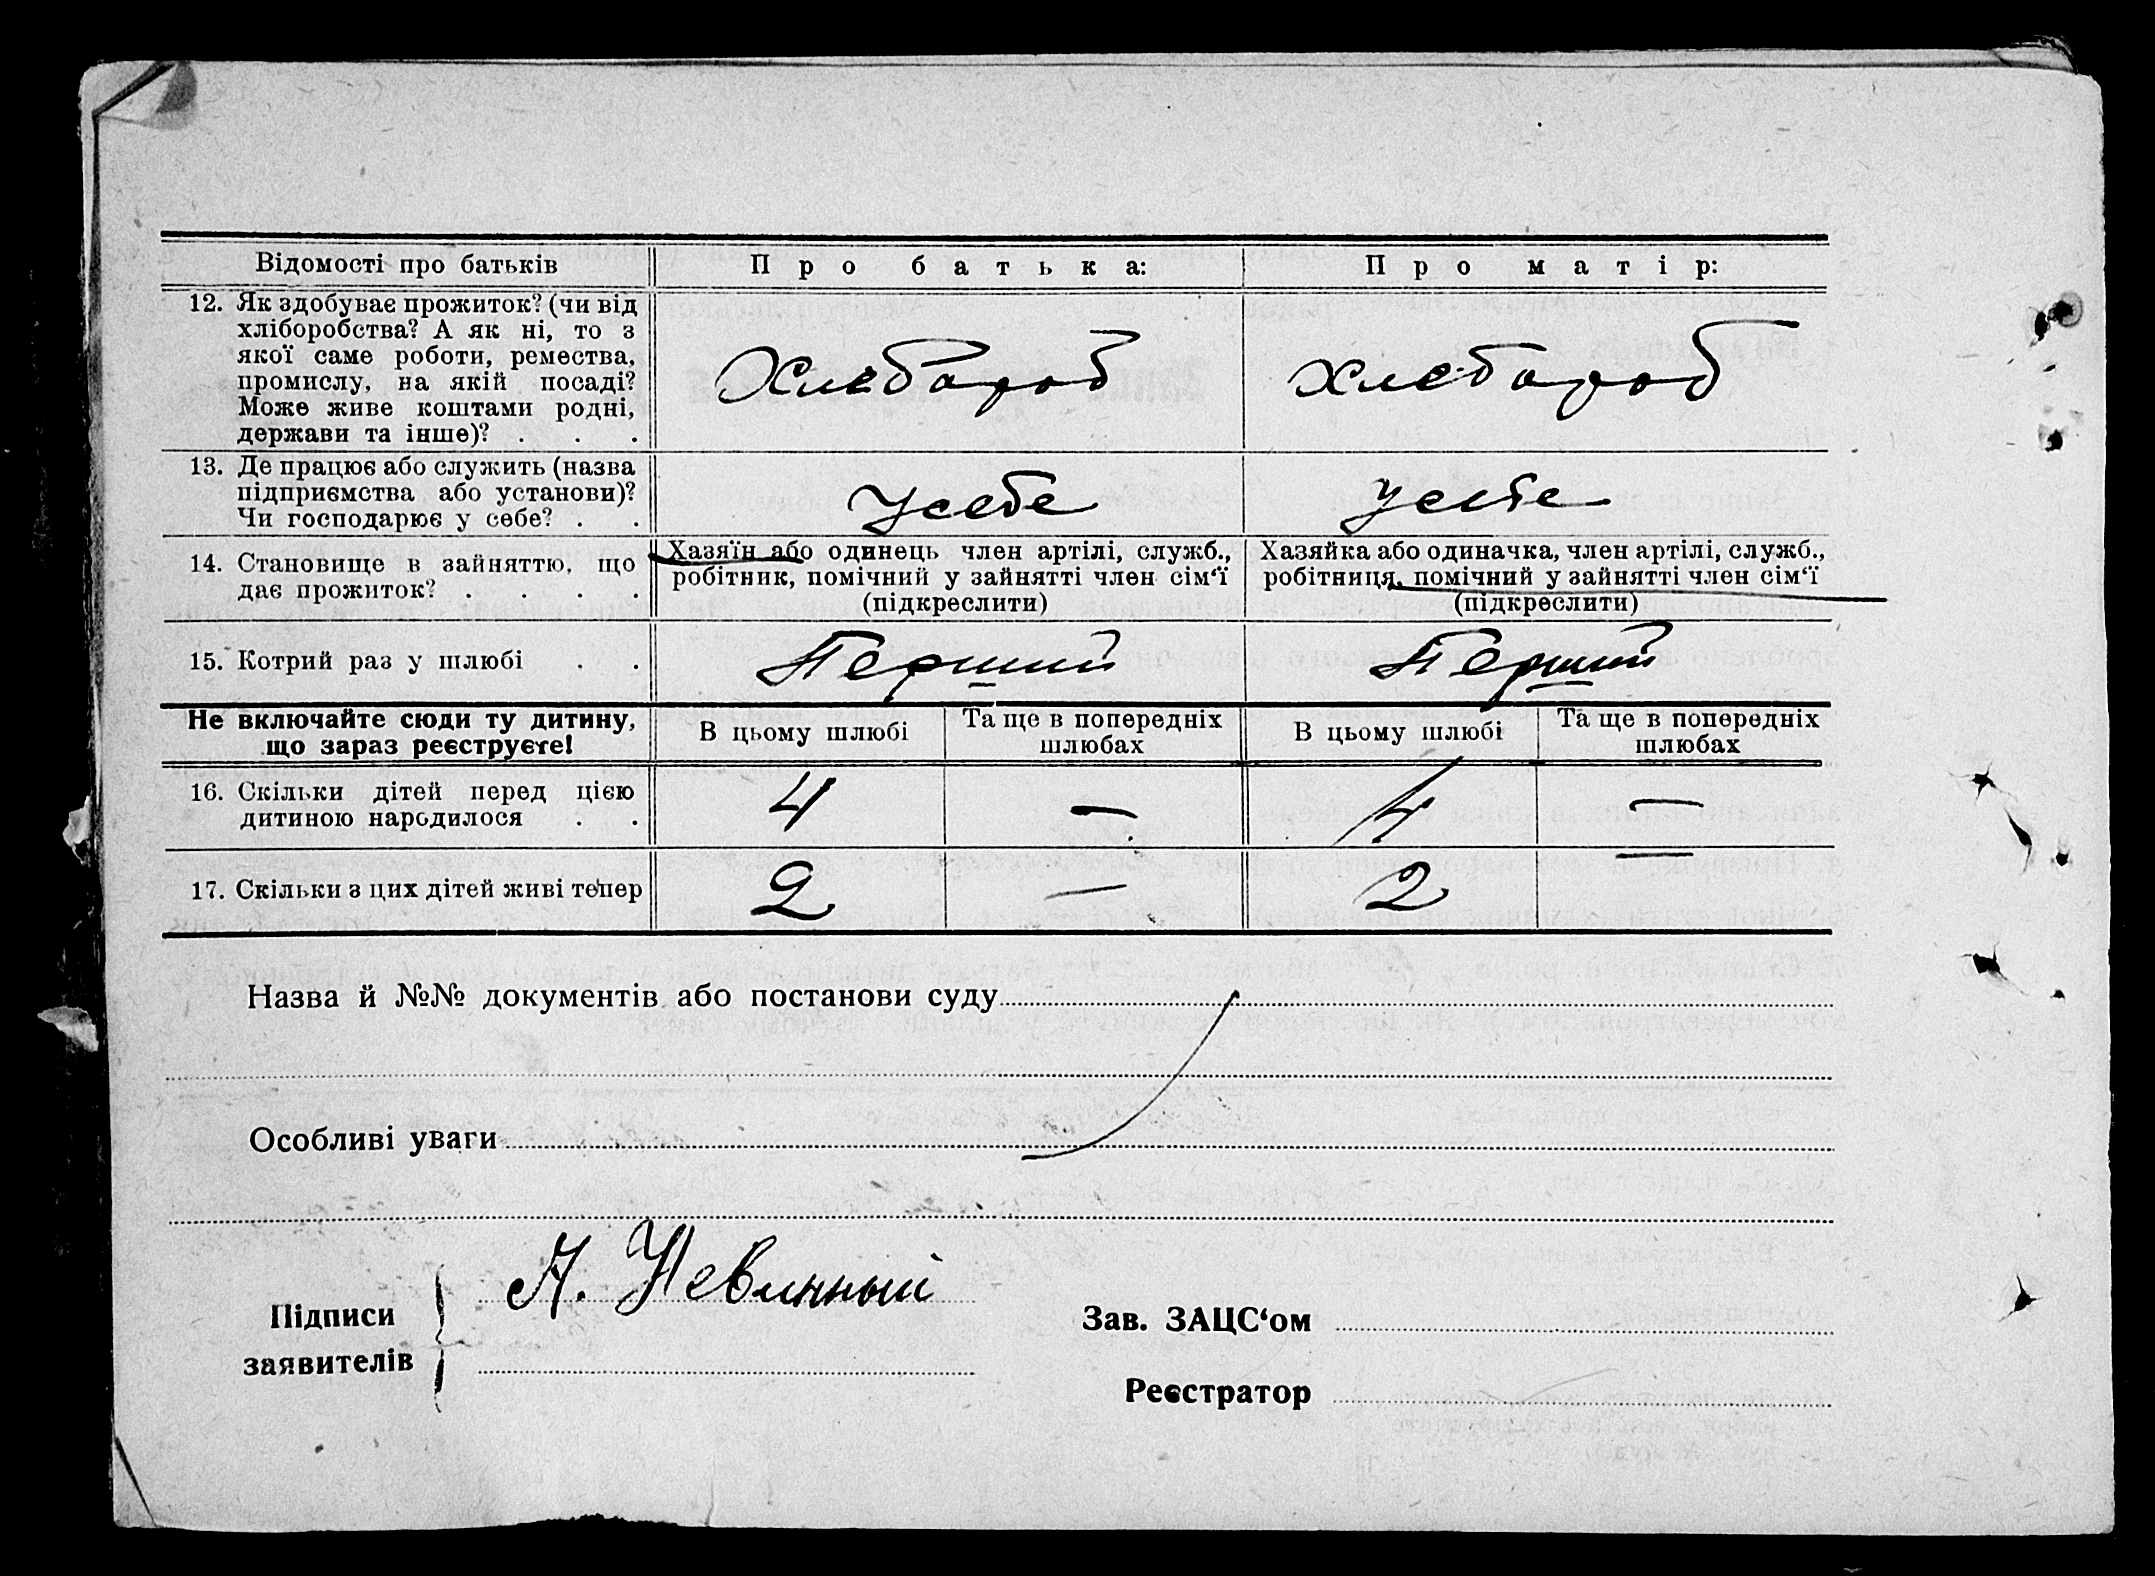 Відомості про батьків
Про батька:
Про матір:
12. Як здобуває прожиток? (чи від
хліборобства? А як ні, то з
якої саме роботи, ремества,
промислу, на якій посаді?
Може живе коштами родні,
держави та інше)? . . .
Хлебороб
Хлебороб
13. Де працює або служить (назва
підприємства або установи)?
Чи господарює у себе? . .
У себе
У себе
14. Становище в зайняттю, що
дає прожиток? . . . .
Хазяїн або одинець член артілі, служб.,
робітник, помічний у зайнятті член сім‘ї
(підкреслити)
Хазяйка або одиначка, член артілі, служб.,
робітниця, помічний у зайнятті член сім‘ї
(підкреслити)
15. Котрий раз у шлюбі . .
Перший
Перший
Не включайте сюди ту дитину,
що зараз реєструєте!
В цьому шлюбі
Та ще в попередніх
шлюбах
В цьому шлюбі
Та ще в попередніх
шлюбах
16. Скільки дітей перед цією
дитиною народилося . .
4
—
4
—
17. Скільки з цих дітей живі тепер
2
—
2
—
Назва й №№ документів або постанови суду
Особливі уваги
Підписи
заявителів
А. Невинный
Зав. ЗАЦС‘ом
Реєстратор